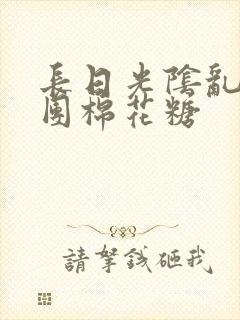 長日光陰亂
團棉花糖
請拏錢砸我